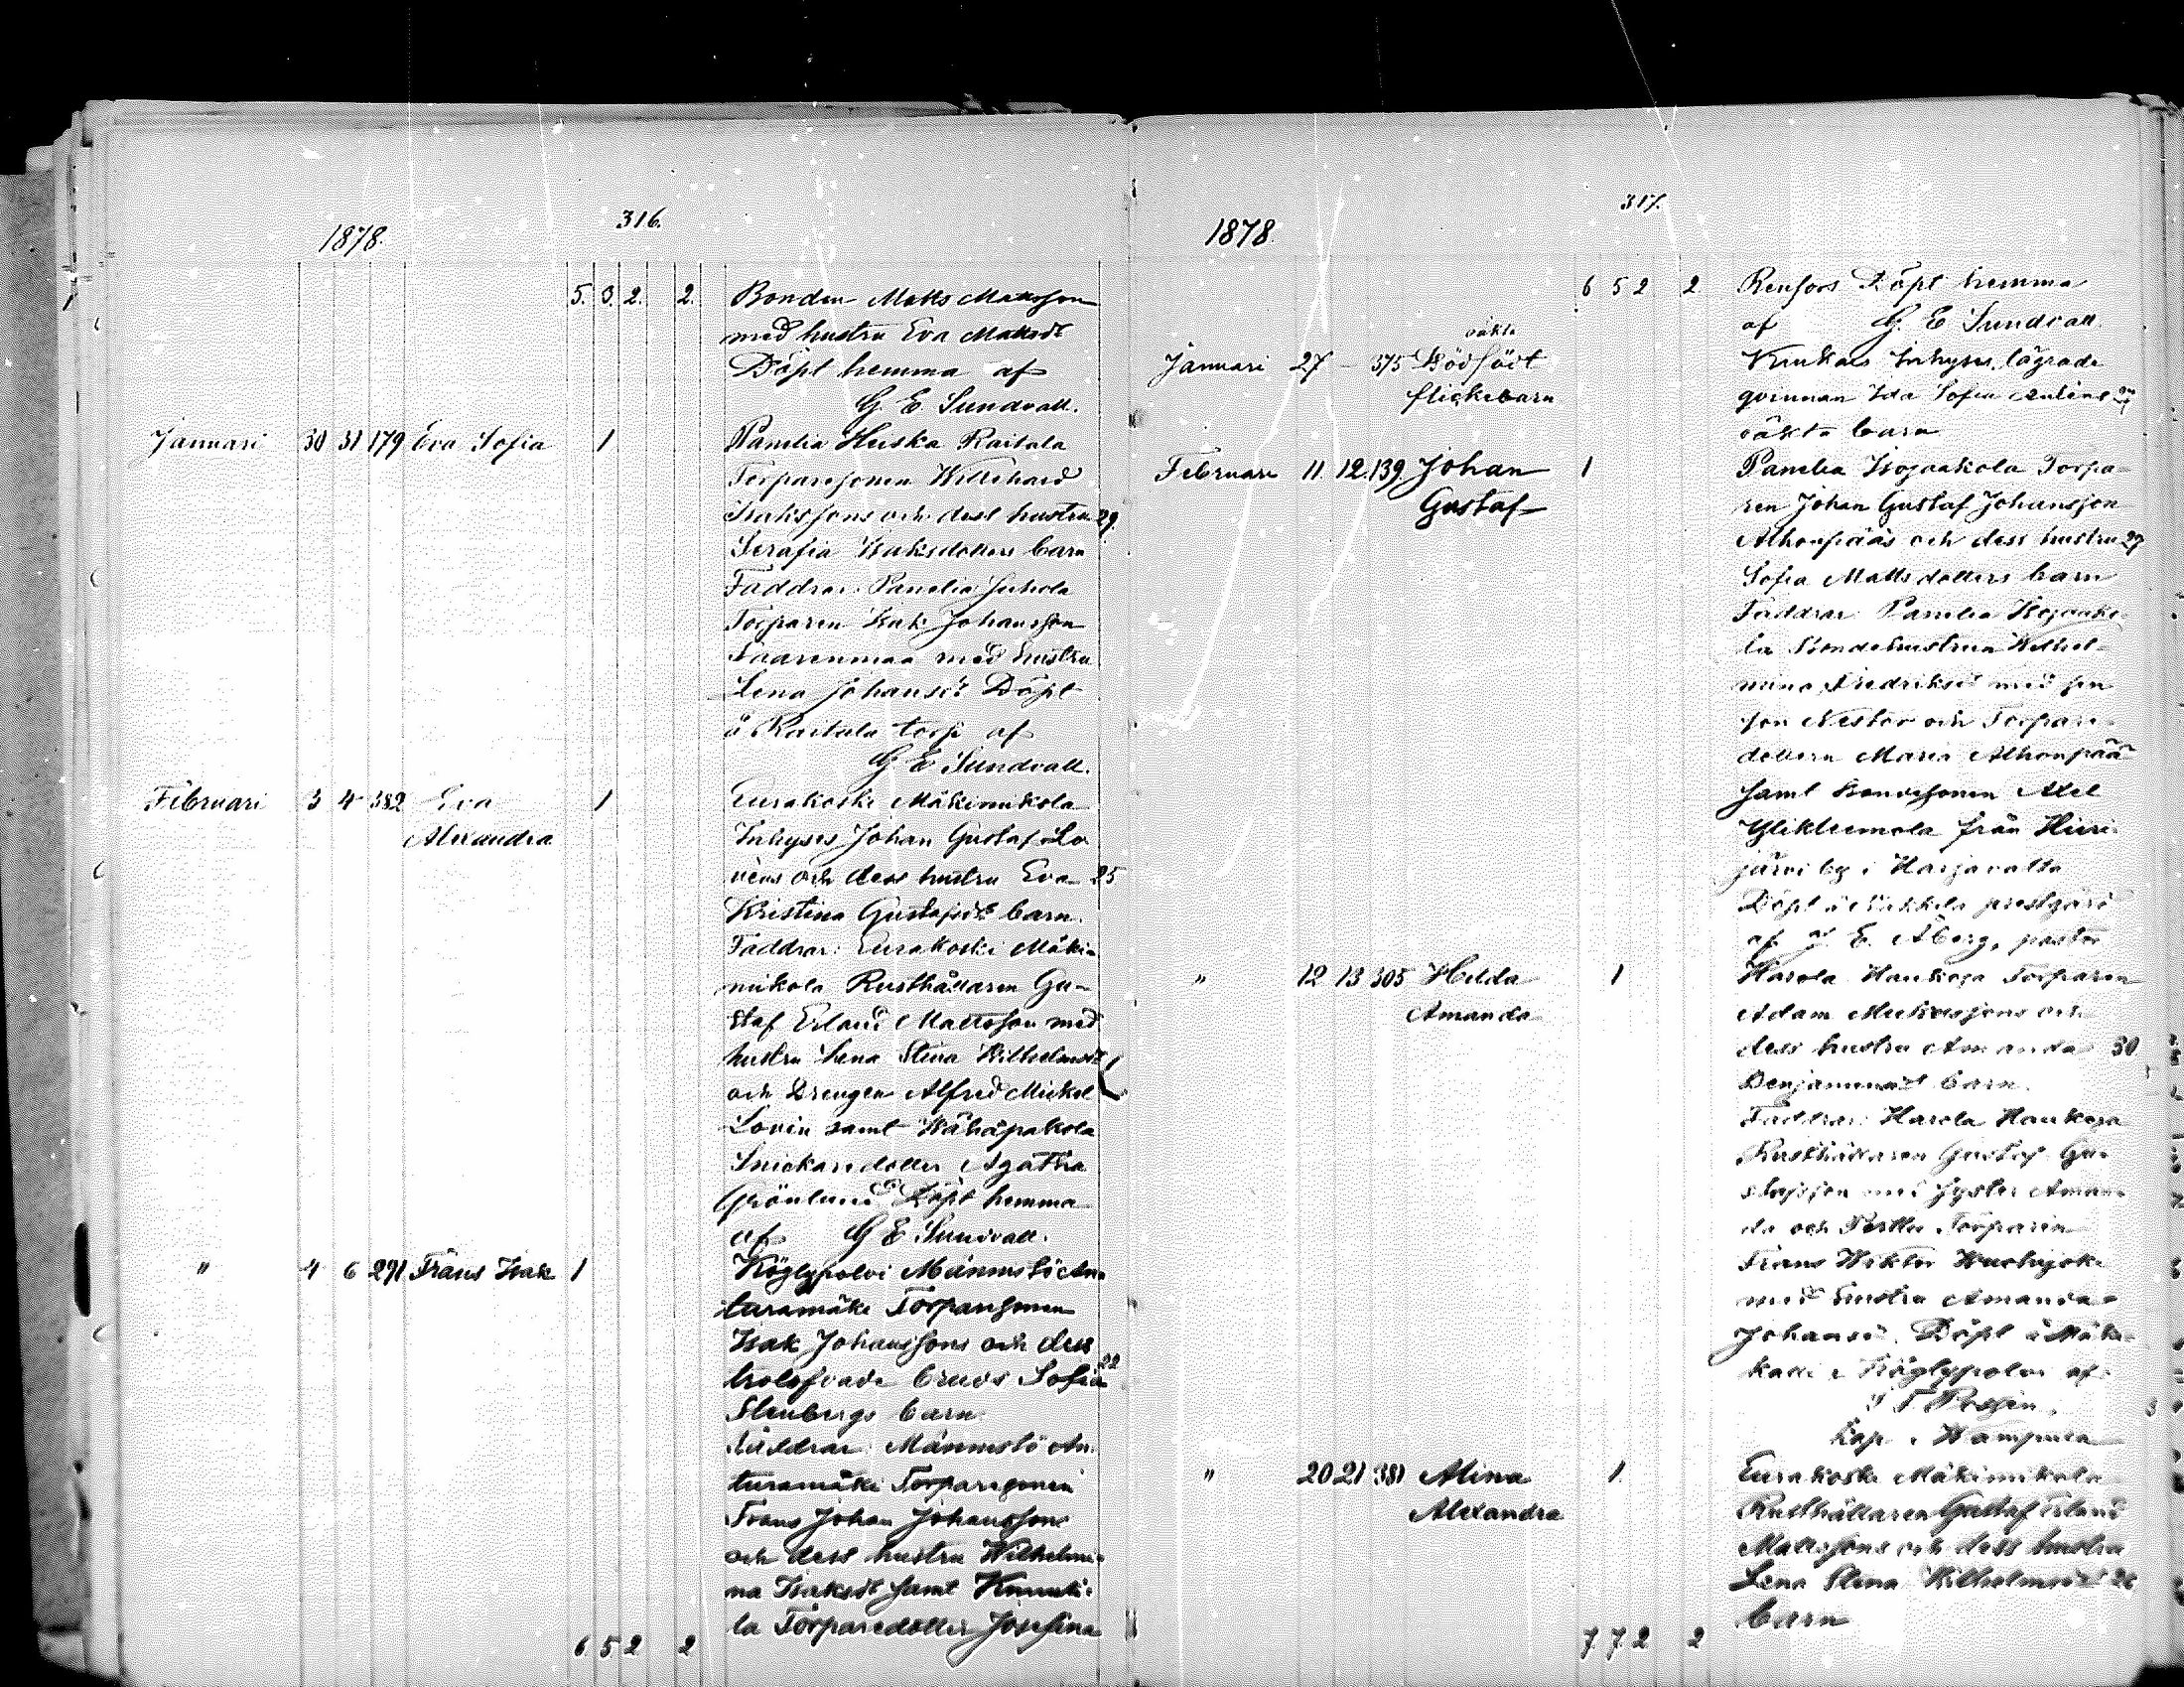 316.
1878.
5. 3. 2. 2. Bonden Matts Mattsson
med hustru Eva Mattsdr
Döpt hemma af
G. E. Sundvall.
Januari 30 31 179 Eva Sofia 1 Panelia Huska Raitala
Torparesonen Willehard
Isakssons och dess hustru 29
Serafia Isaksdotters barn
Faddrar: Panelia Juhola
Torparen Isak Johansson
Saarenmaa med hustru
Lena Johansdr Döpt
å Raitala torp af
G. E Sundvall.
Februari 3 4 382 Eva 1 Eurakoski Mäkimikola
Alexandra Inhyses Johan Gustaf Lo
véns och dess hustru Eva 25
Kristina Gustafsdrs barn.
Faddrar: Eurakoski Mäki-
mikola Rusthållaren Gu-
staf Erland Mattsson med
hustru Lena Stina Wilhelmsdr
och Drengen Alfred Mickel
Lovin samt Wähäpakola
Snickaredotter Agatha
Grönlund Döpt hemma
af G E Sundvall.
" 4 6 291 Frans Isak 1 Köylypolvi Männistö An-
turamäki Torparesonen
Isak Johanssons och dess
trolofvade bruds Sofia 22
Stenbergs barn
Faddrar: Männistö An-
turamäki Torparesonen
Frans Johan Johansson
och dess hustru Wilhelmi-
na Isaksdr samt Knuuti-
la Torparedotter Josefina
6 5 2 2
317.
1878.
6 5 2 2 Renfors Döpt hemma
af G. E Sundvall.
oäkta
Januari 27 - 375 Dödfödt Krukais Inhyses, lägrade
flickebarn qvinnan Ida Sofia 27
oäkta barn
Februari 11. 12. 139. Johan 1 Panelia Isojaakola Torpa-
Gustaf ren Johan Gustaf Johansson
Alhonpääs och dess hustru 27
Sofia Mattsdotters barn
Faddrar: Panelia Isojaako-
la Bondehustrun Wilhel-
mina Fredriksdr med sin
son Nestor och Torpare-
dottern Maria Alhonpää
samt bondesonen Axel
Ylikleemola från Hiiri-
järvi by i Harjavalta
Döpt å prestgård
af J. E. Åberg, pastor
" 12 13 305 Hilda 1 Harola Haukoja Torparen
Amanda Adam Mickelssons och
dess hustru Amanda 30
Benjaminsdr barn.
Faddrar: Harola Haukoja
Rusthållaren Gustaf Gu-
stafsson med syster Aman-
da och Pertku Torparen
Frans Wiktor
med hustru Amanda
Johansdr. Döpt å Mäki-
i Köylypolvi af
Kap. i Kampula
" 20 21 381 Alina 1 Eurakoski Mäkimikola
Alexandra Rusthållaren Gustaf Erland
Mattssons och dess hustru
Lena Stina Wilhelmsdrs 26
barn
7. 7. 2 2